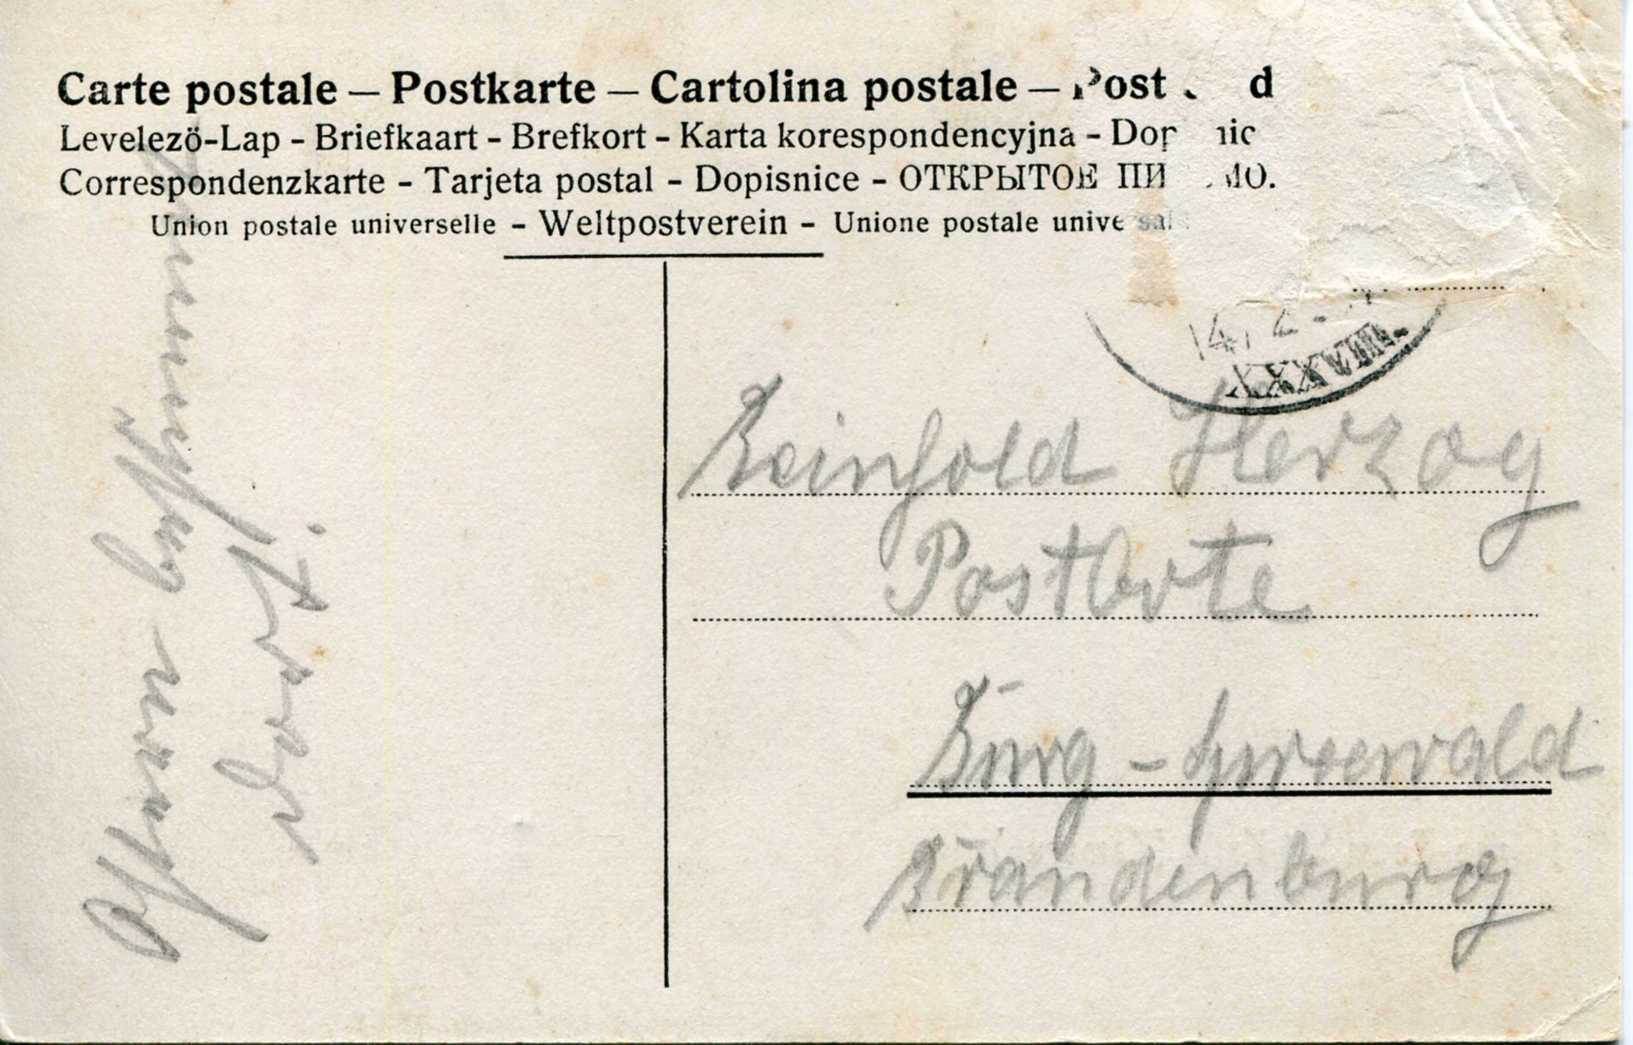 Carte postale – Postkarte – Cartolina postale – Post d
Levelezö-Lap - Briefkaart - Brefkort - Karta korespondencyjna - Dop nic
Correspondenzkarte - Tarjeta postal - Dopisnice - ОТКРЫТОЕ ПИ МО.
Union postale universelle - Weltpostverein - Unione postale universal
14 2
XXXVIII.
Reinhold Herzog
Postbote
Burg - Spreewald
Brandenburg